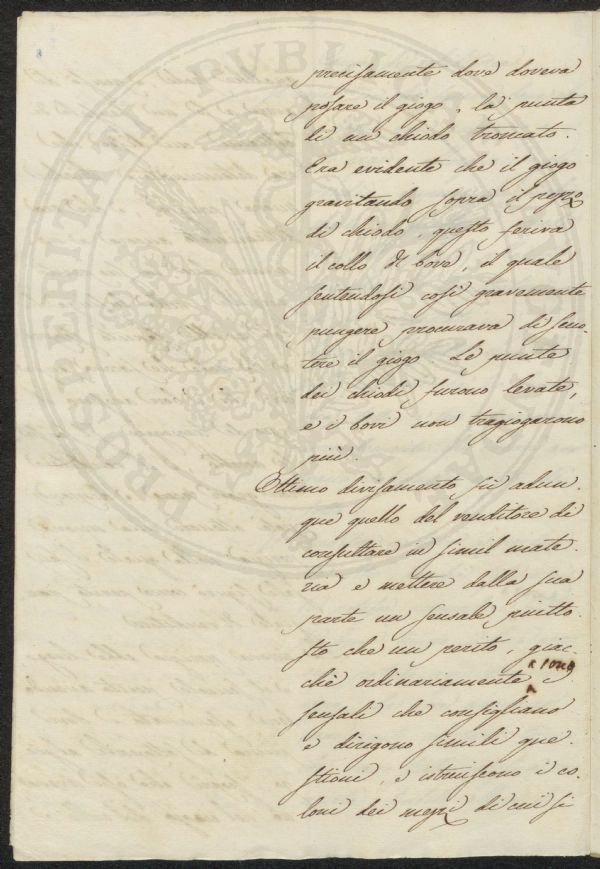 precisamente dove doveva
posare il giogo, la punta
di un chiodo troncato.
Era evidente che il giogo
gravitando sopra il pezzo
di chiodo, questo feriva
il collo di bove, il quale
sentendosi così gravemente
pungere procurava di scuo-
tere il giogo. Le punte
dei chiodi furono levate,
e i bovi non tragiogarono
più.
Ottimo divisamento fù adun-
que quello del venditore di
consultare in simil mate-
ria e mettere dalla sua
parte un sensale piutto-
sto che un perito, giac-
chè ordinariamente sono i
sensali che consigliano
e dirigono simili que-
stioni, e istruiscono i co-
loni dei mezzi di cui si
PVBLI
PROSPERITATI